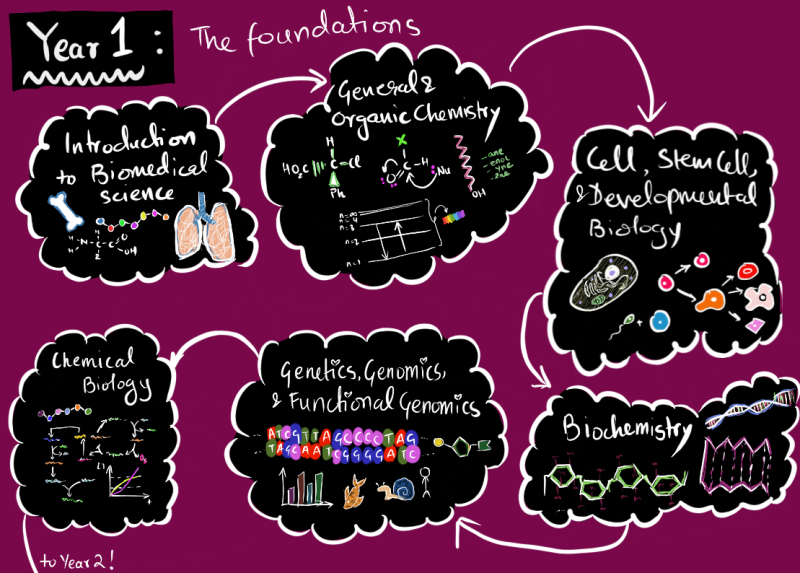 Year 1 :
The foundations
Introduction
to Biomedical
science
H
H
N
C
C
O
OH
H
General &
Organic Chemistry
H
HO₂C
C
Cl
Ph
X
C
H
O
Nu
OH
-ane
-enol
-yne
-ene
n=∞
n=4
n=3
n=2
n=1
Cell, Stem Cell,
& Developmental
Biology
+
Biochemistry
Genetics, Genomics,
& Functional Genomics
ATCGTTAGCCCCTAG
TAGCAATCGGGGATC
Chemical
Biology
to Year 2!